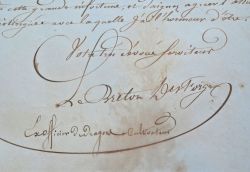 cette grande infortune, et daignez agréer l'
avec laquelle j'ai l'honneur d'être
Votre très dévoué serviteur
Le Breton Desforges
Ex officier de Dragons